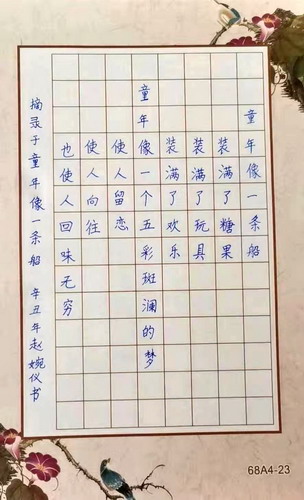 童年像一条船
装满了糖果
装满了玩具
装满了欢乐
童年像一个五彩斑澜的梦
使人留恋
使人向往
也使人回味无穷
摘录于童年像一条船 辛丑年赵婉仪书
68A4-23